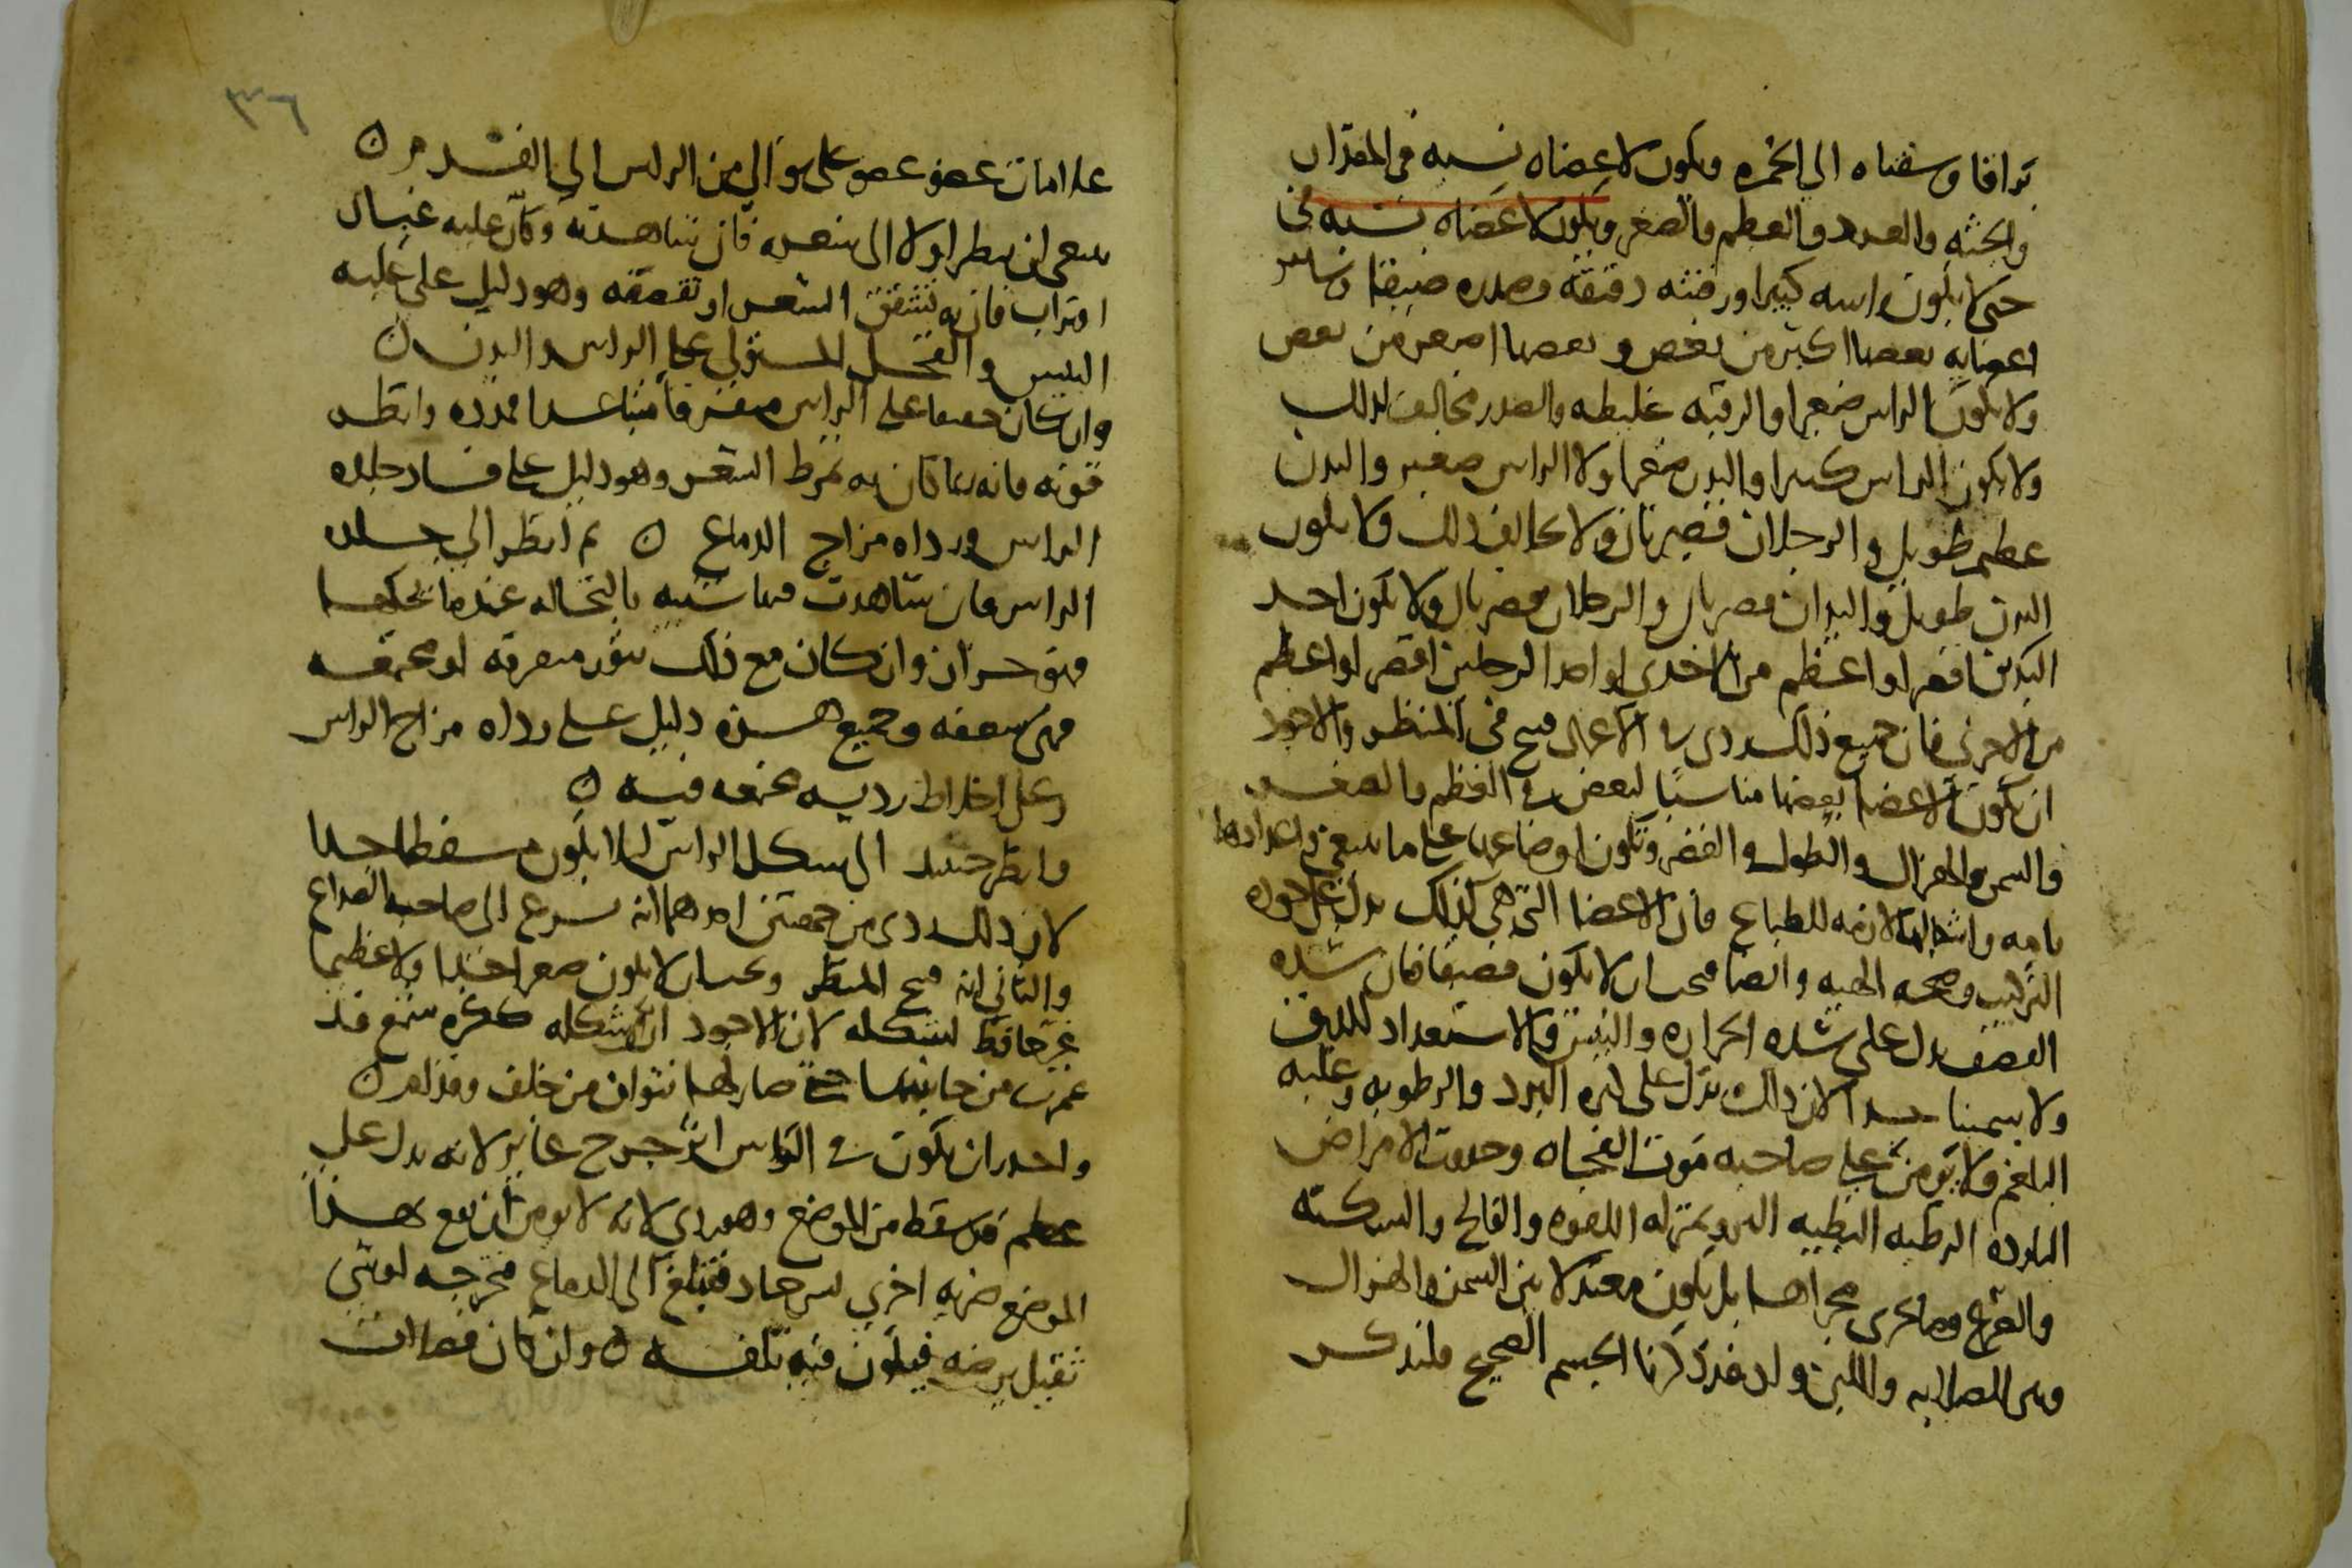 براقا وشفتاه الى الحمره وتكون لاعضاه نسبه فى المقدار
والجثه والعدد والعظم والصغر ويكون لاعضاه نسبه فى
حتى لا يكون راسه كبيرا ورقبته دقيقة وصدره ضيقا وساير
اعضايه بعضها اكبر من بعض وبعضها اصغر من بعض
ولا يكون الراس صغيرا والرقبه غليظه والصدر مخالف لذلك
ولا يكون الراس كبيرا والبدن صغيرا ولا الراس صغير والبدن
عظيم طويل والرجلان قصيرتان ولا يخالف ذلك ولا يكون
البدن طويل واليدان قصيرتان والرجلان قصيرتان ولا يكون احد
اليدين اقصر او اعظم من الاخرى او احد الرجلين اقصر او اعظم
من الاخرى فان جميع ذلك ردى فى الاعمال قبيح فى المنظر والاجود
ان تكون الاعضا بعضها مناسبا لبعض فى العظم والصغر
والسمن والهزال والطول والقصر وتكون اوضاعها على ما ينبغى واعدادها
تامه واشكالها لازمه للطباع فان الاعضا التى هى كذلك يدل على جوده
التركيب وصحه الهيه وايضا فيجب ان لا يكون قضيفا فان شده
القضف يدل على شده الحراره واليبس والاستعداد للدق
ولا سمينا جدا لان ذلك يدل على كثره البرد والرطوبه وغلبه
البلغم ولا يومن على صاحبه موت الفجاه وحدوث الامراض
البارده الرطبه البطيه البرو بمنزله اللقوه والفالج والسكته
والصرع وما يجرى مجراها بل يكون معتدلا بين السمن والهزال
وبين الصلابه واللين واذ قد ذكرنا الجسم الصحيح فلنذكر
٣٦
علامات عضو عضو على توالى من الراس الى القدم ن
ينبغى ان ينظر اولا الى شعره فان شاهدته وكان عليه غبار
او تراب فان به تشقق الشعر او تقصفه وهو دليل على غلبه
اليبس والقحل المستولى على الراس والبدن ن
وان كان خفيفا على الراس متفرقا متباعدا فمدده وانظر
قوته فانه ربما كان به تمرط الشعر وهو دليل على فساد جلده
الراس ورداه مزاج الدماغ ن ثم انظر الى جلده
الراس فان شاهدت فيها شبيه بالنخاله عندما تحكها
فهو حزاز وان كان مع ذلك بثور متفرقه او مجتمعه
فهى سعفه وجميع هذه دليل على رداه مزاج الراس
وعلى اخلاط رديه مجتمعه فيه ن
وانظر حينيد الى شكل الراس ليلا يكون مسفطا جدا
لان ذلك ردى من جهتين احدهما انه يسرع الى صاحبه الصداع
والثانى انه قبيح المنظر ويجب ان لا يكون صغيرا جدا ولا عظيما
غير حافظ لشكله لان الاجود ان شكله ككره شمع قد
غمزت من جانبيها حتى صار لها نتوان من خلف وقدام ن
واحدر ان يكون فى الراس اثر جرح غاير لانه يدل على
عظم قد سقط من الموضع وهو ردى لانه لا يومن ان يقع بهذا
الموضع ضربه اخرى ليس حاد فتبلغ الى الدماغ فتجرحه او شى
ثقيل يرضه فيكون فيه تلفه ن وان كان قصاات